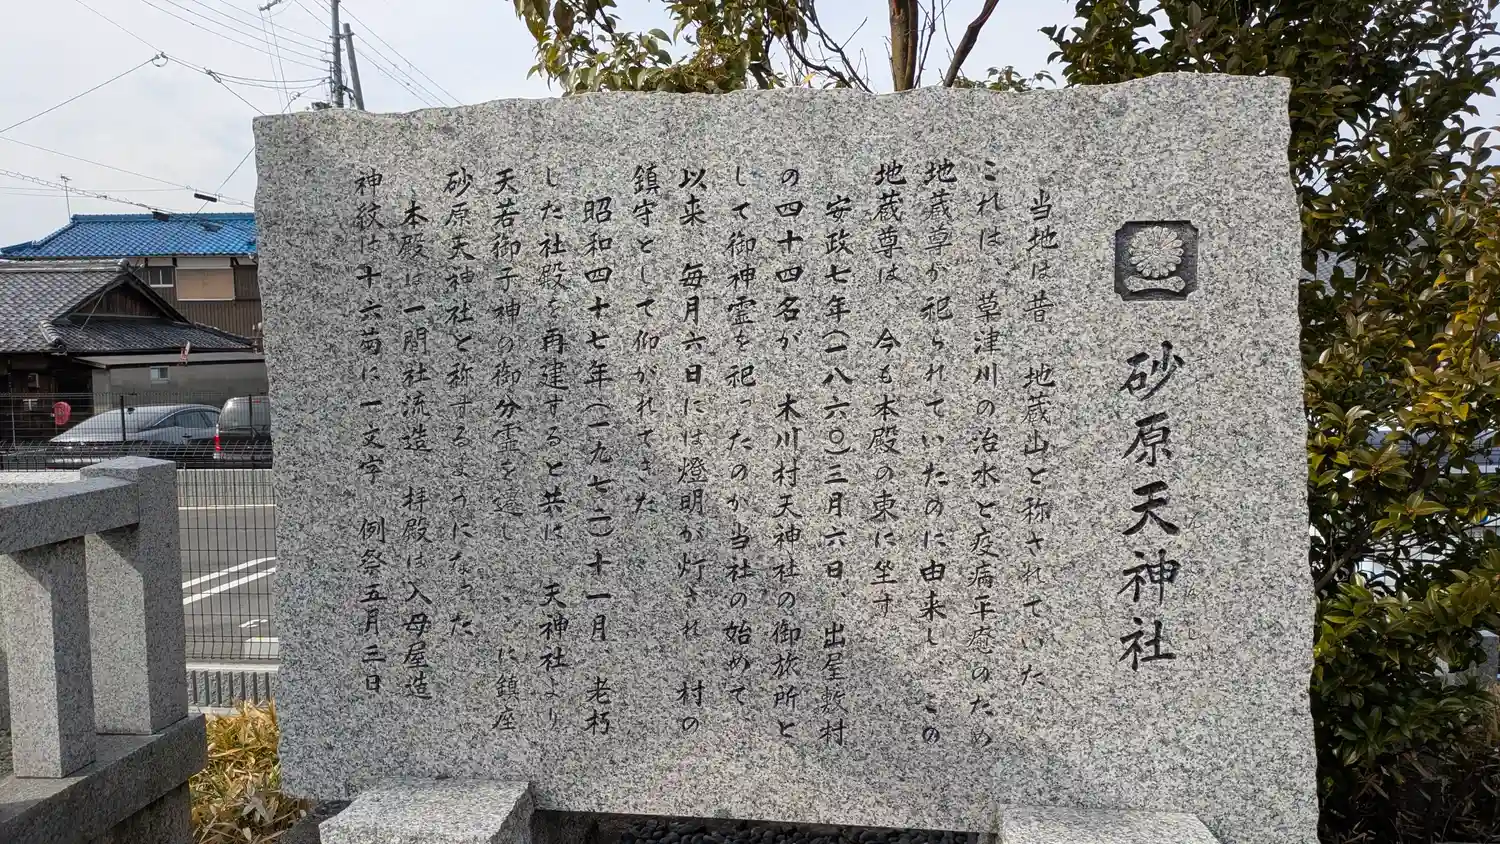 砂原天神社
当地は昔 地蔵山と称されていた
これは、草津川の治水と疫病平癒のため
地蔵尊が祀られていたのに由来し、この
地蔵尊は、今も本殿の東に坐す
安政七年(一八六〇)三月六日、出屋敷村
の四十四名が、木川村天神社の御旅所と
して御神霊を祀ったのが当社の始めで
以来 毎月六日には燈明が灯され、村の
鎮守として仰がれてきた
昭和四十七年(一九七二)十一月 老朽
した社殿を再建すると共に 天神社より
天若御子神の御分霊を遷し ここに鎮座
砂原天神社と称するようになった
本殿は一間社流造 拝殿は入母屋造
神紋は十六菊に一文字 例祭五月三日